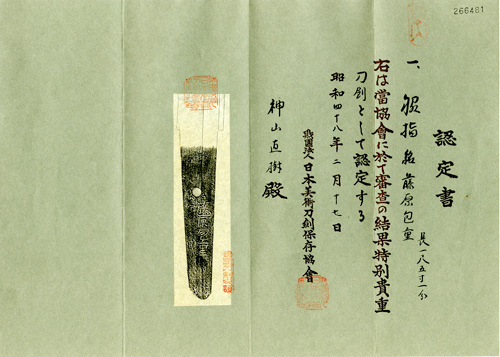 266481
認定書
一、脇指 銘 藤原包重
長一尺五寸一分
右は當協會に於て審查の結果特別貴重
刀剣として認定する
昭和四十八年二月十七日
財團法人日本美術刀剣保存協會
神山直樹 殿